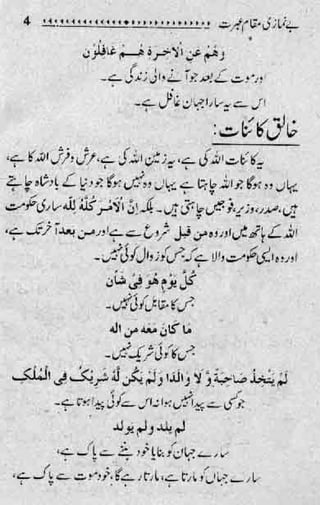 بے نمازی مقام عبرت 4
وَهُمْ عَنِ الْاٰخِرَةِ هُمْ غَافِلُوْن
اور موت کے بعد جو آنے والی زندگی ہے۔
اس سے یہ سارا جہان غافل ہے۔
خالق کائنات:
یہ کائنات اللہ کی ہے، یہ زمین اللہ کی ہے، عرش و فرش اللہ کا ہے،
یہاں وہ ہوگا جو اللہ چاہتا ہے یہاں وہ نہیں ہوگا جو دنیا کے بادشاہ چاہتے
ہیں، صدر، وزیر، فوجیں چاہتی ہیں۔ بلکہ اِنَّ الْاَمْرَ كُلَّهُ لِلّٰه ساری حکومت
اللہ کے ہاتھ میں اور وہ من قبل شروع سے ہے اور من بعد آخر تک ہے،
اور وہ ایسی حکومت والا ہے کہ جس کو زوال کوئی نہیں۔
كُلَّ يَوْمٍ هُوَ فِيْ شَأْن
جس کا مقابل کوئی نہیں۔
مَا كَانَ مَعَهٗ مِنْ اِلٰه
جس کا کوئی شریک نہیں۔
لَمْ يَتَّخِذْ صَاحِبَةً وَّلَا وَالَدًا وَلَمْ يَكُنْ لَّهٗ شَرِيْكٌ فِي الْمُلْكِ
جو کسی سے پیدا نہیں ہوا نہ اس سے کوئی پیدا ہوتا ہے۔
لم يلد ولم يولد
سارے جہان کو بنایا خود بننے سے پاک ہے،
سارے جہاں کو مارتا ہے، مارتا رہے گا، خود موت سے پاک ہے،